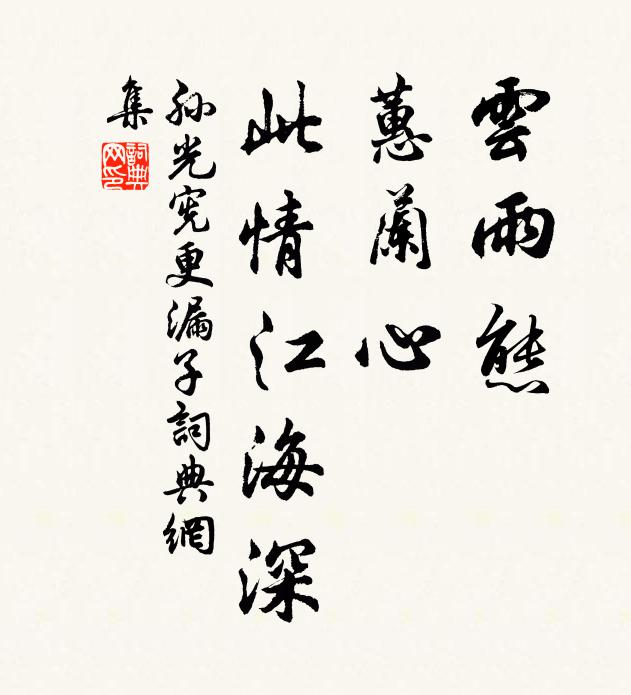 雲雨態
蕙蘭心
此情江海深
孙光宪更漏子詞典網
集
詞典
网印